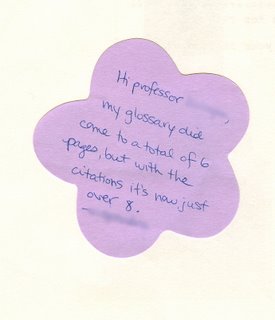 Hi professor
my glossary did
come to a total of 6
pages, but with the
citations it's now just
over 8.